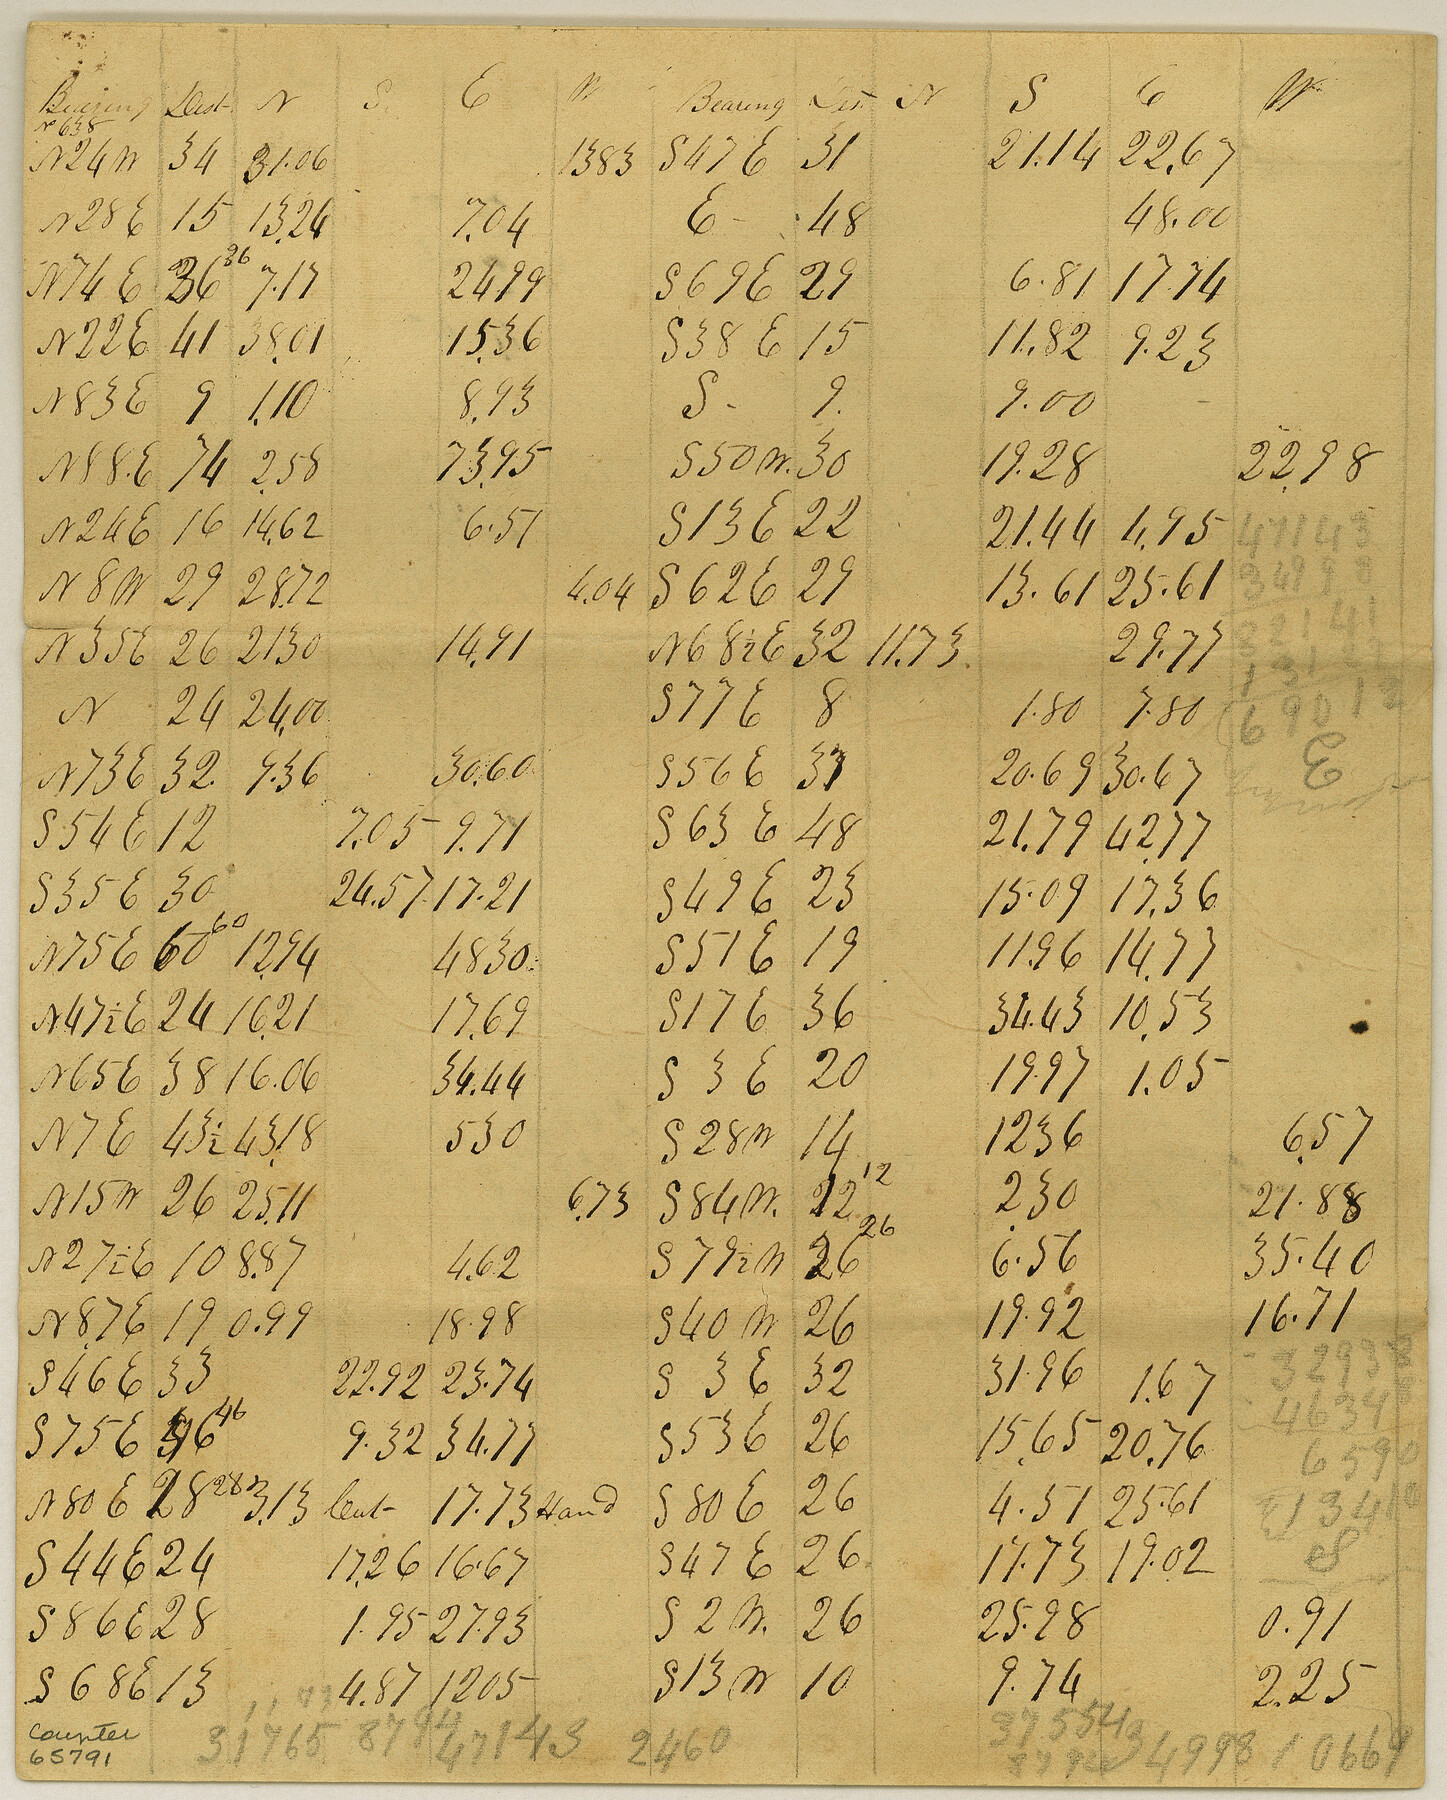 Bearing Dist. N S. E W Bearing Dis. N S E W
No 638
N24W 34 31.06 1383 S47E 31 21.14 22.67
N28E 15 13.24 7.04 E - 48 48.00
N74E 26 26 7.17 2499 S69E 29 6.81 17.74
N22E 41 38.01 15.36 S38E 15 11.82 9.23
N83E 9 1.10 8.93 S - 9. 9.00
N88.E 74 2.58 73.95 S50W. 30 19.28 22.98
N24E 16 14.62 6.51 S13E 22 21.44 4.95 47143
N8W 29 28.72 4.04 S62E 29 13.61 25.61 34998
N35E 26 2130 14.91 N68½E 32 11.73. 29.77 82141
N 24 24.00 S77E 8 1.80 7.80 69012
N73E 32. 9.36 30.60 S56E 37 20.69 30.67 E
S54E 12 7.05 9.71 S63E 48 21.79 42.77
S35E 30 24.57 17.21 S49E 23 15.09 17.36
N75E 50 60 12.94 4830 S51E 19 11.96 14.77
N47½E 24 16.21 17.69 S17E 36 34.43 10.53
N65E 38 16.06 34.44 S3E 20 19.97 1.05
N7E 43½ 43.18 530 S28W 14 1236 6.57
N15W 26 25.11 6.73 S84W. 22 12 2.30 21.88
N27½E 10 8.87 4.62 S79½W 36 26 6.56 35.40
N.87E 19 0.99 18.98 S40W 26 19.92 16.71
S46E 33 22.92 23.74 S3E 32 31.96 1.67 32938
S75E 36 46 9.32 34.77 S53E 26 15.65 20.76 46348
N80E 18 28 3.13 Cut 17.73 Hand S80E 26 4.51 25.61 6590
S44E 24 17.26 16.67 S47E 26 17.73 19.02 13410
S
S86E 28 1.95 27.93 S2W. 26 25.98 0.91
S68E 13 4.87 1205 S13W 10 9.74 2.25
31765 8794 47143 2460 37554 34998 10669
Counter
65791